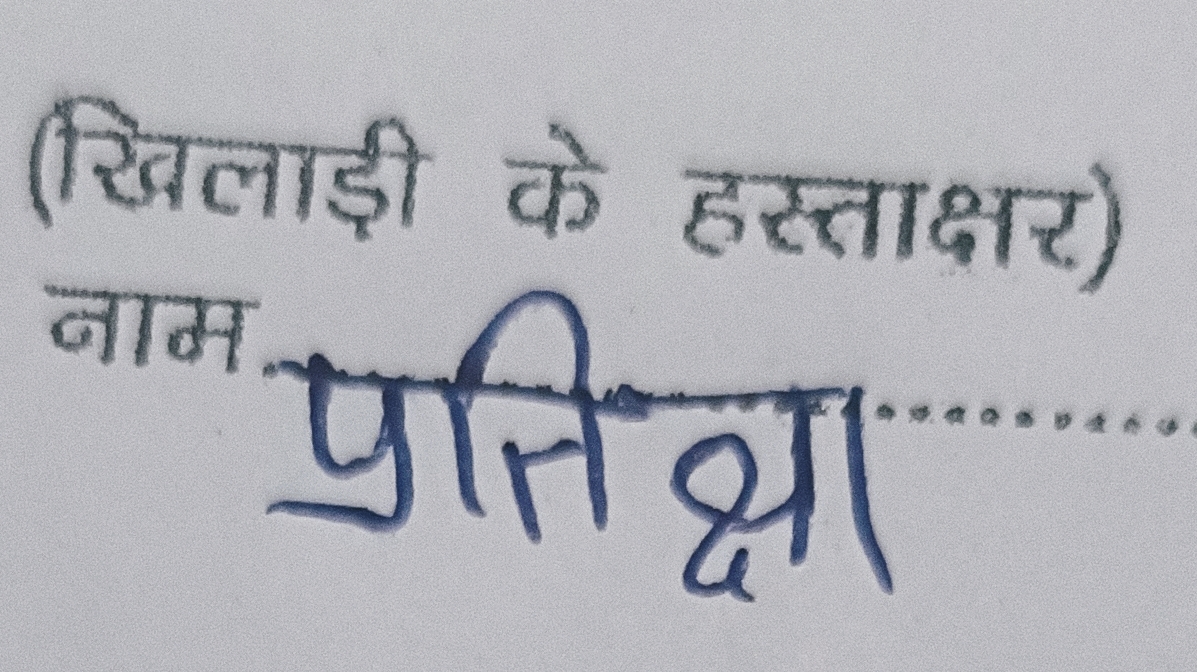 (खिलाड़ी के हस्ताक्षर)
नाम. प्रतिक्षा..........